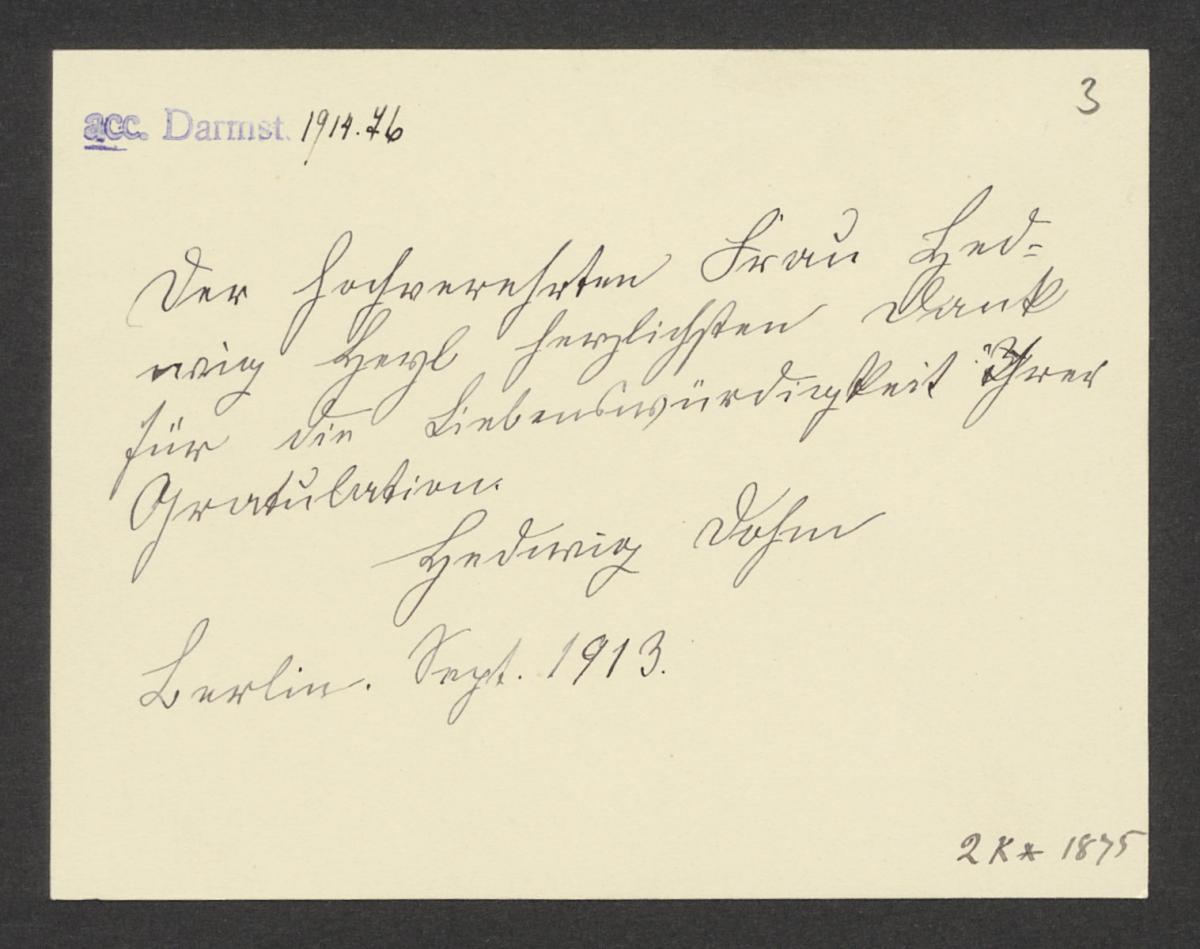 3
acc. Darmst. 1914.76
Der hochverehrten Frau Hed-
wig Heyl herzlichsten Dank
für die Liebenswürdigkeit Ihrer
Gratulation.
Hedwig Dohm
Berlin. Sept. 1913.
2 K * 1875